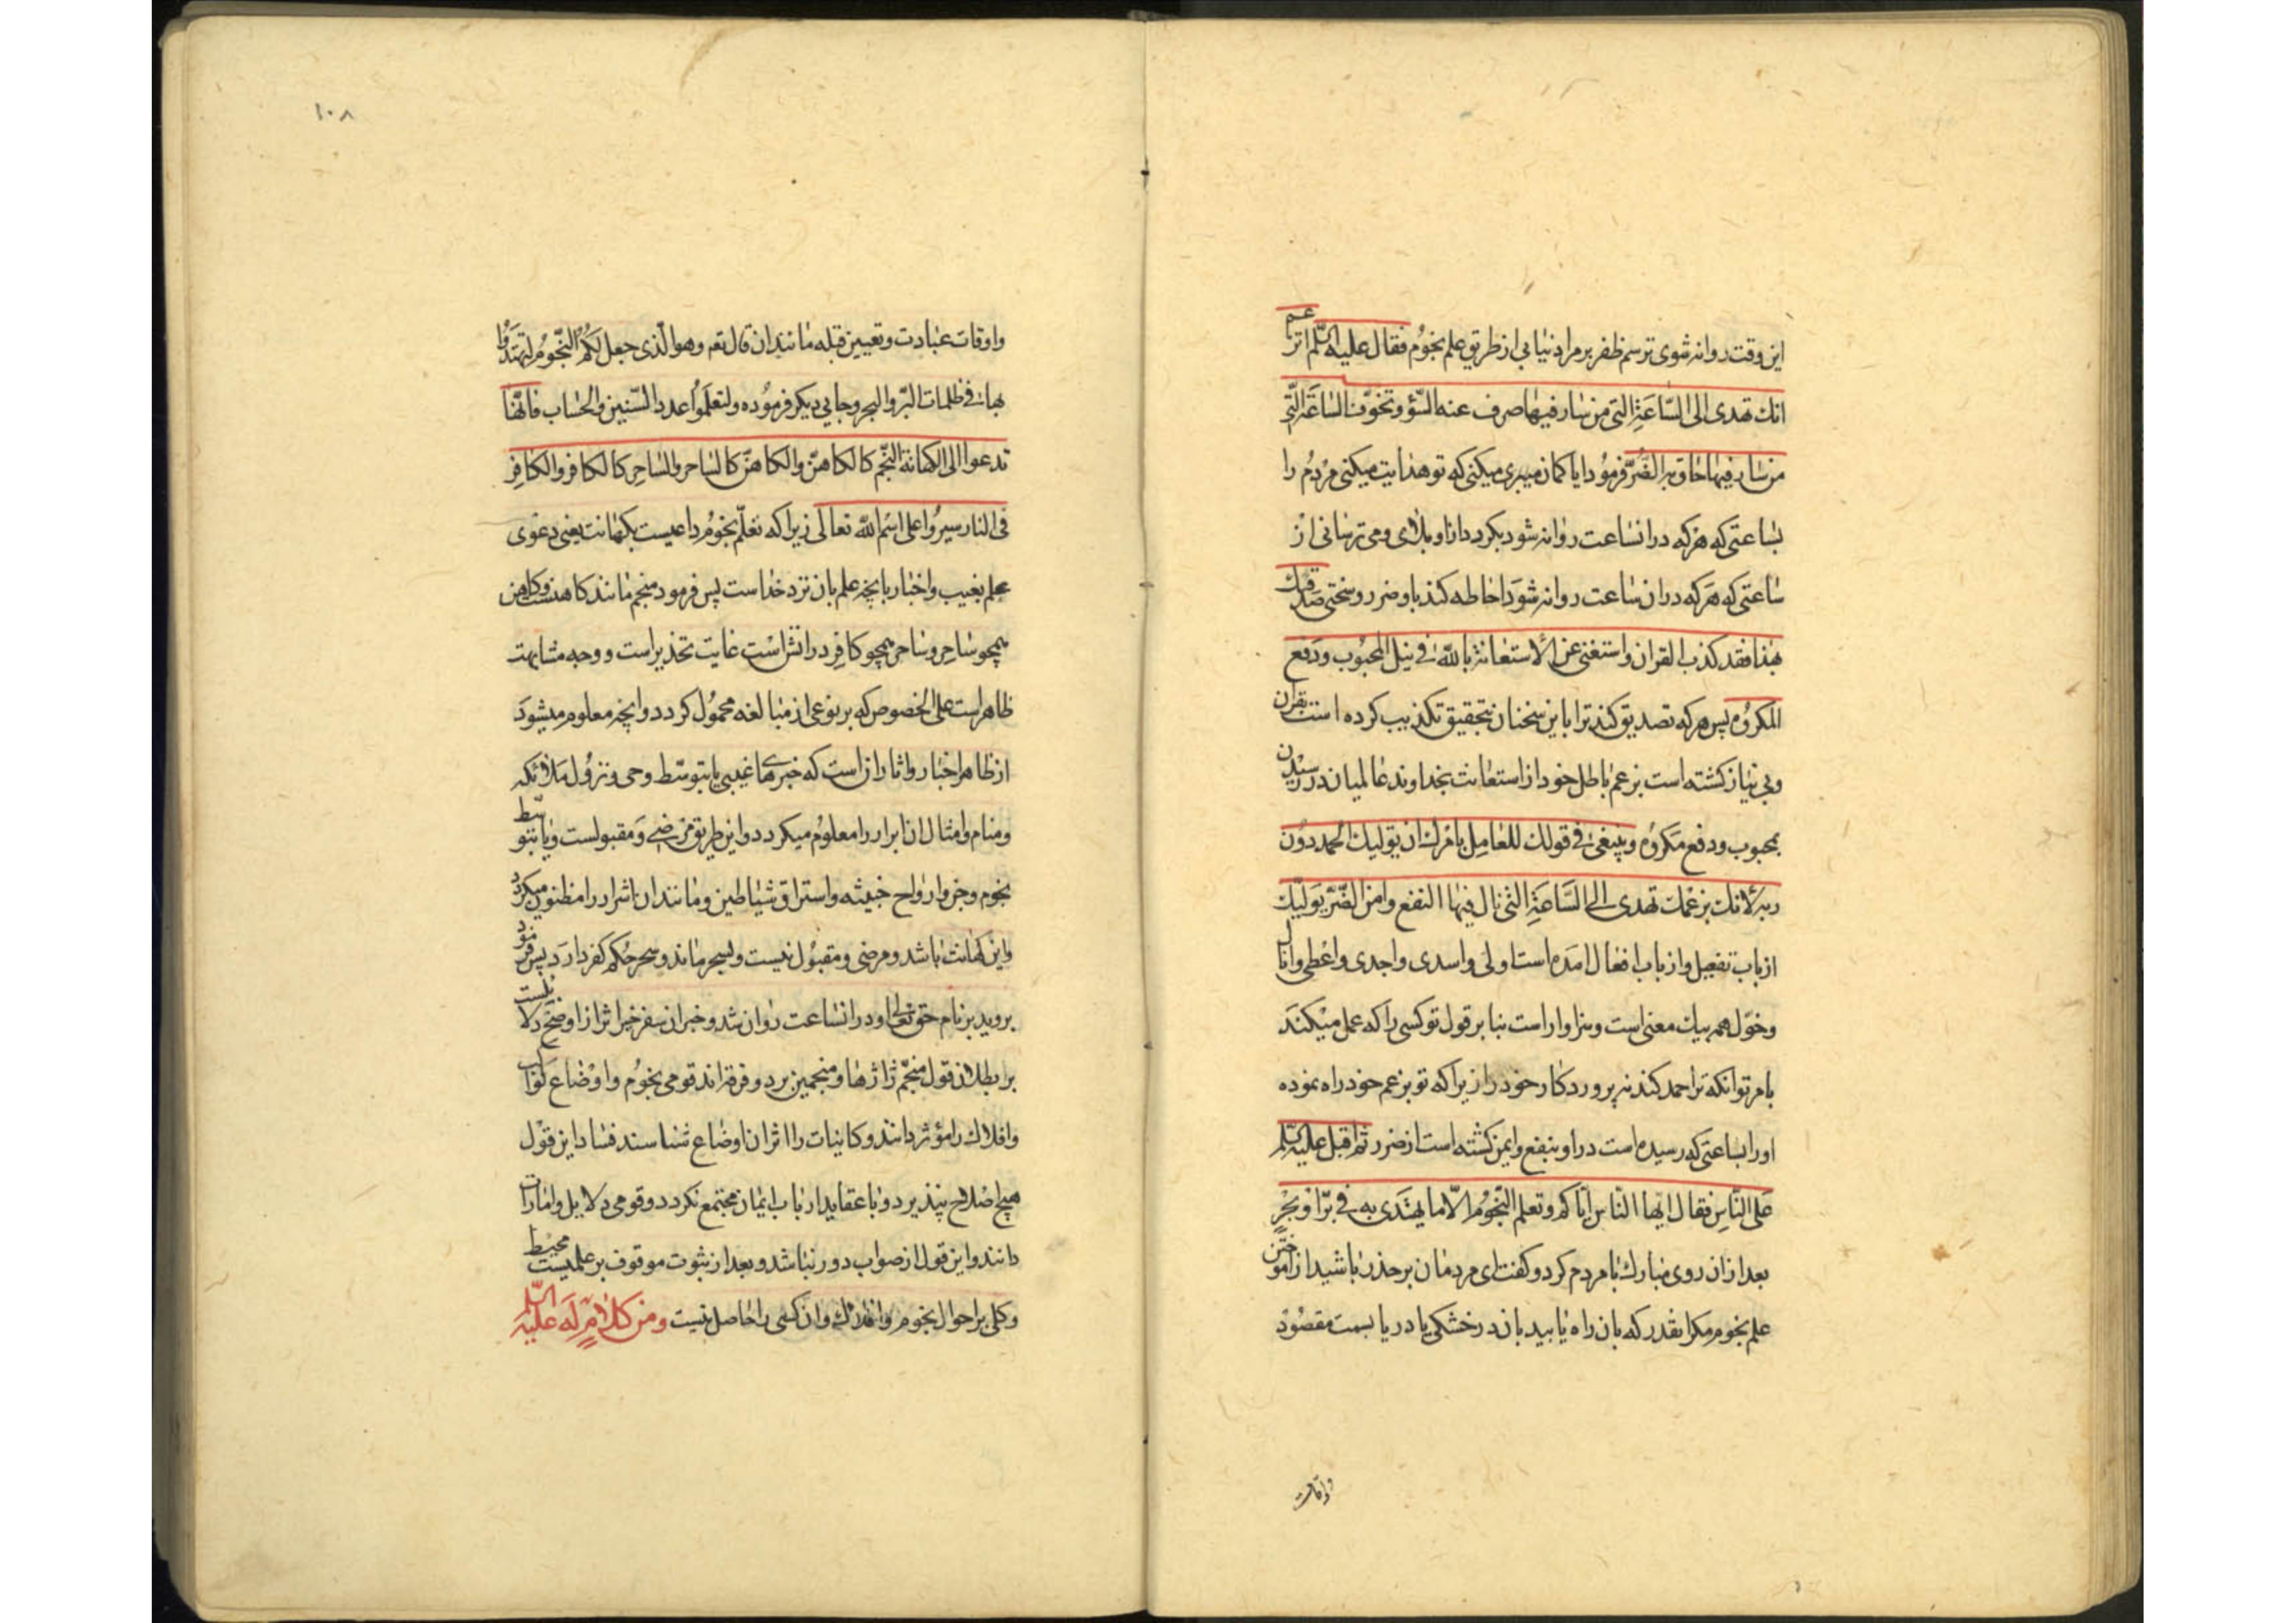 این وقت روانه شوی ترسم ظفر بر مراد نیابی از طریق علم نجوم فقال علیه السّلم اتزعم
انك تهدى الى السّاعَةِ التى من سار فیها صرف عنه السّؤ وتخوّف السّاعَة الّتى
من سار فیها حاق به الضُّرّ فرمود ایا كمان میبری میكنی كه تو هدایت میكنی مردُم را
بساعتی كه هركه در انساعت روانه شود بكردد از او بلای و می ترسانی از
ساعتی كه هركه در ان ساعت روانه شود احاطه كند باو ضرر و سختی فمن صدقك
بهذا فقد كذب القران واستغنى عن الاستعانة بالله فى نیل المحبُوب ودفع
المكرُوه پس هركه تصدیق كند ترا باین سخنان بتحقیق تكذیب كرده است بقران
وبی نیاز كشته است بزعم باطل خود از استعانت بخداوند عالمیان در رسیدن
بمحبوب و دفع مكرُوه وینبغى فى قولك للعامِل بامرك ان یولیك الحمد دُون
ربه لانك بزعمك تهدى الى السَّاعَةِ التى نال فیها النفع وامن الضّرّ یوَلیّك
از باب تفعیل و از باب افعال امده است اولى واسدى واجدى واعْطى وانال
وخوّل همه بیك معنی است و سزاوار است بنابر قول تو كسی را كه عمل میكنَد
بامر تو انكه ترا حمد كند نه پروردكار خود را زیرا كه تو بزعم خود راه نموده
او را بساعتی كه رسیده است در او بنفع و ایمن كشته است از ضرر ثم اقبل علیه السّلم
عَلى النّاسِ فقال ایّها النّاس ایّاكم وتعلم النّجوُم الاّ ما یهتدى به فى برّ او بحْرٍ
بعد از ان روی مبارك بامردم كرد و كفت ای مردمان بر حذر باشید از اموختن
علم نجوم مكر انقدر كه بان راه یابید بان در خشكی یا دریا بسمت مقصُود
واوقات
۱۰۸
واوقات عبادت وتعیین قبله مانند ان قال تعه وهو الّذى جعل لكُم النّجُومَ لتهتَدُوا
بها فى ظلمات البرّ والبحر وجایی دیكر فرمُوده ولتعلَمُوا عدد السّنین والحساب فانّها
تدعوا الى الكهانة المنجّم كالكاهن والكاهن كالساحر والساحِر كالكافر والكافِر
فى النار سیرُوا على اسْم الله تعالى زیرا كه تعلّم نجُوم داعیست بكهانت یعنی دعوی
علم بغیب و اخبار بانچه علم بان نزد خداست پس فرمود منجم مانند كاهنست وكاهن
همچو ساحِر و ساحر همچو كافِر در اتش است غایت تحذیر است و وجه مشابهت
ظاهر است علی الخصوص كه بر نوعی از مبالغه محمُول كردد و انچه معلوم میشودَ
از ظاهر اخبار و اثار ان است كه خبرهای غیبی یا بتوسّط وحی و نزُول ملائكه
ومنام و امثال ان ابرار را معلوُم میكردد و این طریق مرضی وَ مقبولست و یا بتوسّط
نجوم و جن و ارواح خبیثه و استراق شیاطین و مانند ان اشرار را مظنون میكردد
واین كهانت باشد و مرضی و مقبُول نیست و بسحر ماند و سحر حُكم كفر دارد پس فرمود
بروید بر نام حق تعالی و در انساعت روان شد و خبر ان سفر خیر اثر از اوضح دلایلست
بر بطلان قول منجّم ژاژها و منجمین بر دو فرقه اند قومی نجُوم و اوْضاع كواكب
وافلاك را مؤثر دانند و كاینات را اثر ان اوضاع شناسند فساد این قوْل
هیچ اصْلاح نپذیرد و با عقاید ارباب ایمان مجتمع نكردد و قومی دلایل و امارات
دانند و این قول از صواب دور نباشد و بعد از ثبوت موقوف بر علمیست محیط
وكلی بر احوال نجوم و افلاك و ان كسی را حاصل نیست ومن كلامٍ لَه علَیْه السّلم